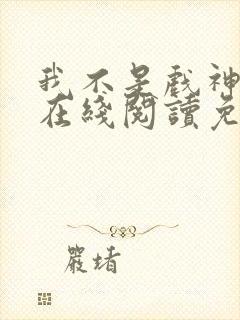 我不是戲神
在綫閱讀免
嚴堵